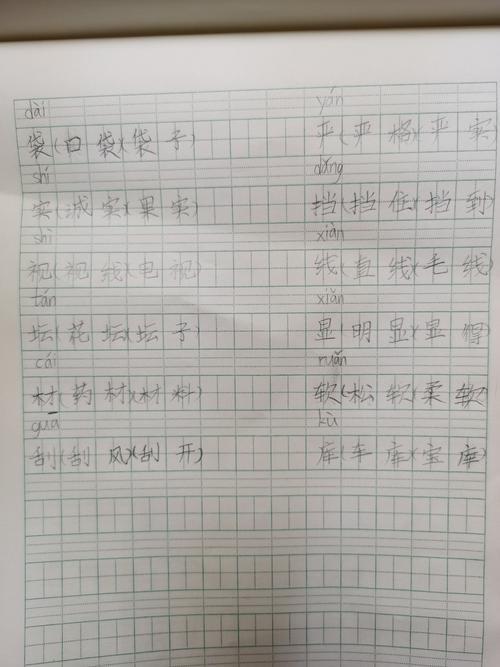 dài yán
袋(口袋)(袋子) 严(严格)(严实)
shí dǎng
实(诚实)(果实) 挡(挡住)(挡到)
shì xiàn
视(视线)(电视) 线(直线)(毛线)
tán xiǎn
坛(花坛)(坛子) 显(明显)(显得)
cái ruǎn
材(药材)(材料) 软(松软)(柔软)
guā kù
刮(刮风)(刮开) 库(车库)(宝库)